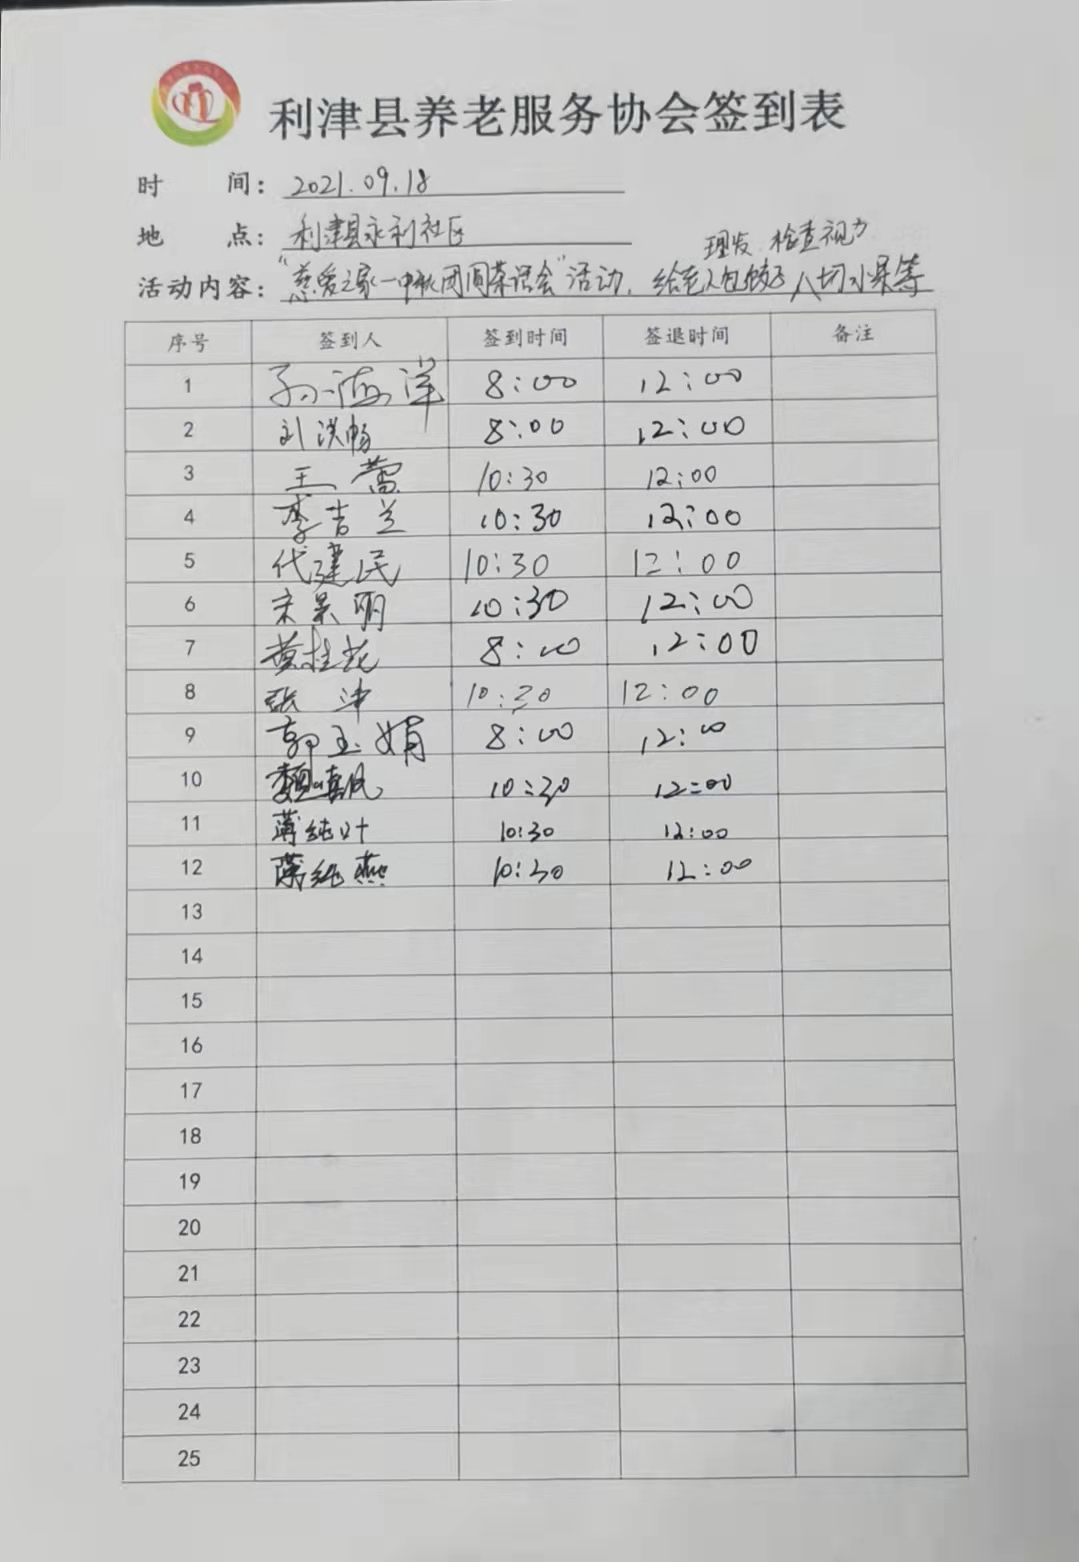 利津县养老服务协会签到表
时 间: 2021.09.18
地 点: 利津县永利社区
理发、检查视力
活动内容: "慈爱之家一中秋团圆茶话会"活动,给老人包饺子、切水果等
序号 签到人 签到时间 签退时间 备注
1 孙海洋 8:00 12:00
2 刘洪畅 8:00 12:00
3 王蕾 10:30 12:00
4 李吉兰 10:30 12:00
5 代建民 10:30 12:00
6 宋景明 10:30 12:00
7 黄桂花 8:00 12:00
8 张冲 10:30 12:00
9 郭玉娟 8:00 12:00
10 10:30 12:00
11 薄纯叶 10:30 12:00
12 薄纯燕 10:30 12:00
13
14
15
16
17
18
19
20
21
22
23
24
25